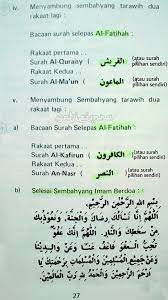 iv. Menyambung sembahyang tarawih dua
rakaat lagi :
Bacaan surah selepas Al-Fatihah :
Rakaat pertama . .
Surah Al-Quraisy القريش (atau surah
pilihan sendiri)
Rakaat Kedua . .
Surah Al-Ma'un الماعون (atau surah
pilihan sendiri)
v. Menyambung Sembahyang tarawih dua
rakaat lagi :
a) Bacaan Surah Selepas Al-Fatihah :
Rakaat pertama . .
Surah Al-Kafirun الكافرون (atau surah
pilihan sendiri)
Rakaat Kedua . .
Surah An-Nasr النصر (atau surah
pilihan sendiri)
b) Selesai Sembahyang Imam Berdoa :
بِسْمِ اللهِ الرَّحْمٰنِ الرَّحِيْمِ
اَللّٰهُمَّ إِنَّا نَسْأَلُكَ رِضَاكَ وَالْجَنَّةَ وَنَعُوْذُ بِكَ
مِنْ سَخَطِكَ وَالنَّارِ. اَللّٰهُمَّ إِنَّكَ عَفُوٌّ
تُحِبُّ الْعَفْوَ فَاعْفُ عَنَّا وَعَنْ وَالِدِيْنَا
27